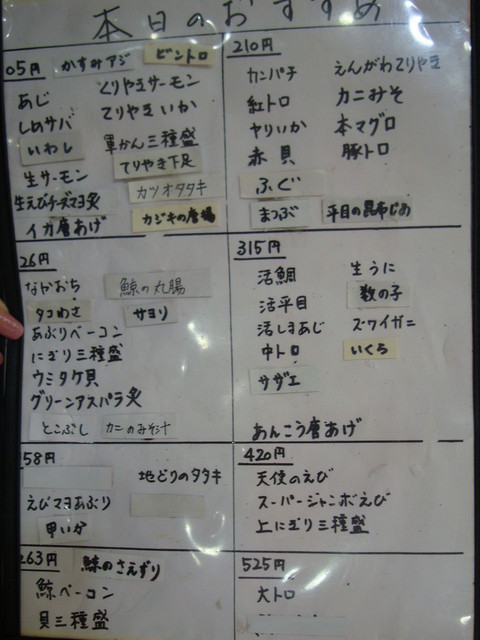 本日のおすすめ
05円 かすみアジ ビントロ
あじ てりやきサーモン
しめサバ てりやきいか
いわし 軍かん三種盛
生サーモン てりやき下足
生えびチーズマヨ炙 カツオタタキ
イカ唐あげ カジキの唐揚
210円
カンパチ えんがわてりやき
紅トロ カニみそ
ヤリいか 本マグロ
赤貝 豚トロ
ふぐ
まつぶ 平目の昆布じめ
26円
なかおち 鯨の丸腸
タコわさ サヨリ
あぶりベーコン
にぎり三種盛
ウミタケ貝
グリーンアスパラ炙
とこぶし カニのみそ汁
315円
活鯛 生うに
活平目 数の子
活しまあじ ズワイガニ
中トロ いくら
サザエ
あんこう唐あげ
58円
地どりのタタキ
えびマヨあぶり
甲いか
420円
天使のえび
スーパージャンボえび
上にぎり三種盛
263円 鯨のさえずり
鯨ベーコン
貝三種盛
525円
大トロ